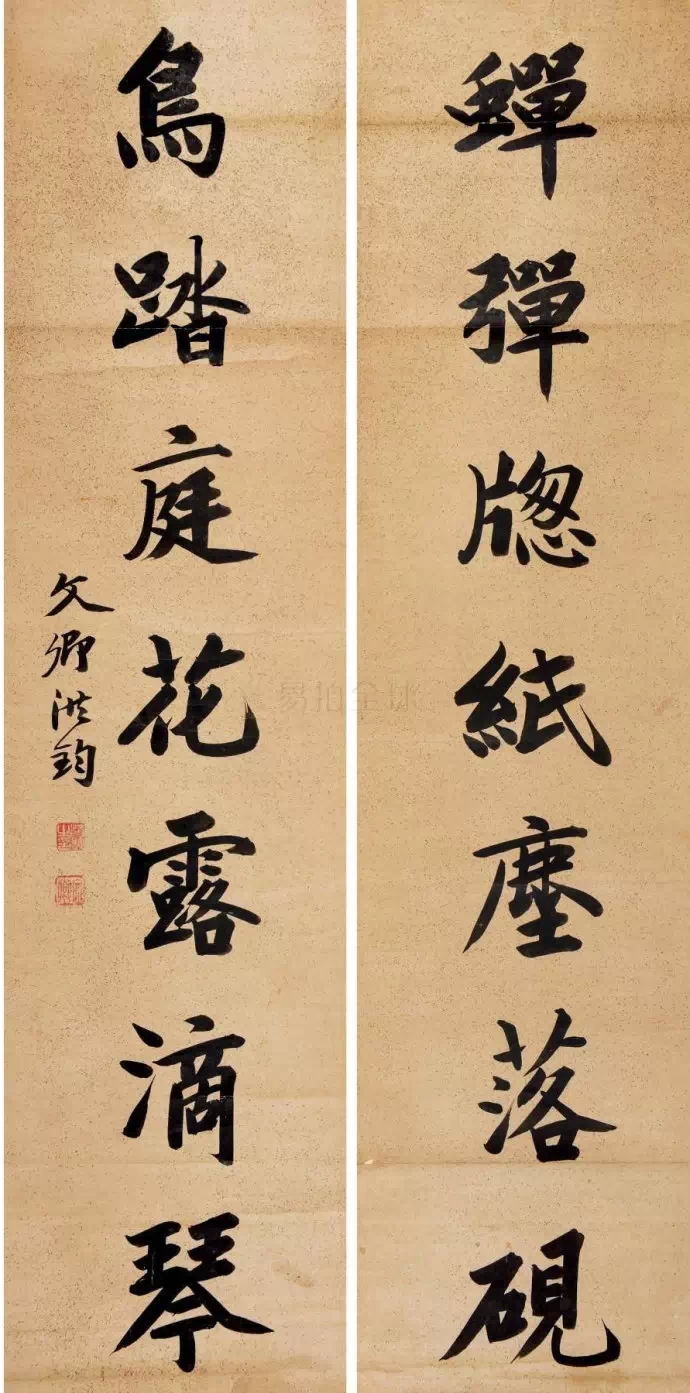 蟬彈牎紙塵落硯
鳥踏庭花露滴琴
文卿洪鈞
易拍全球